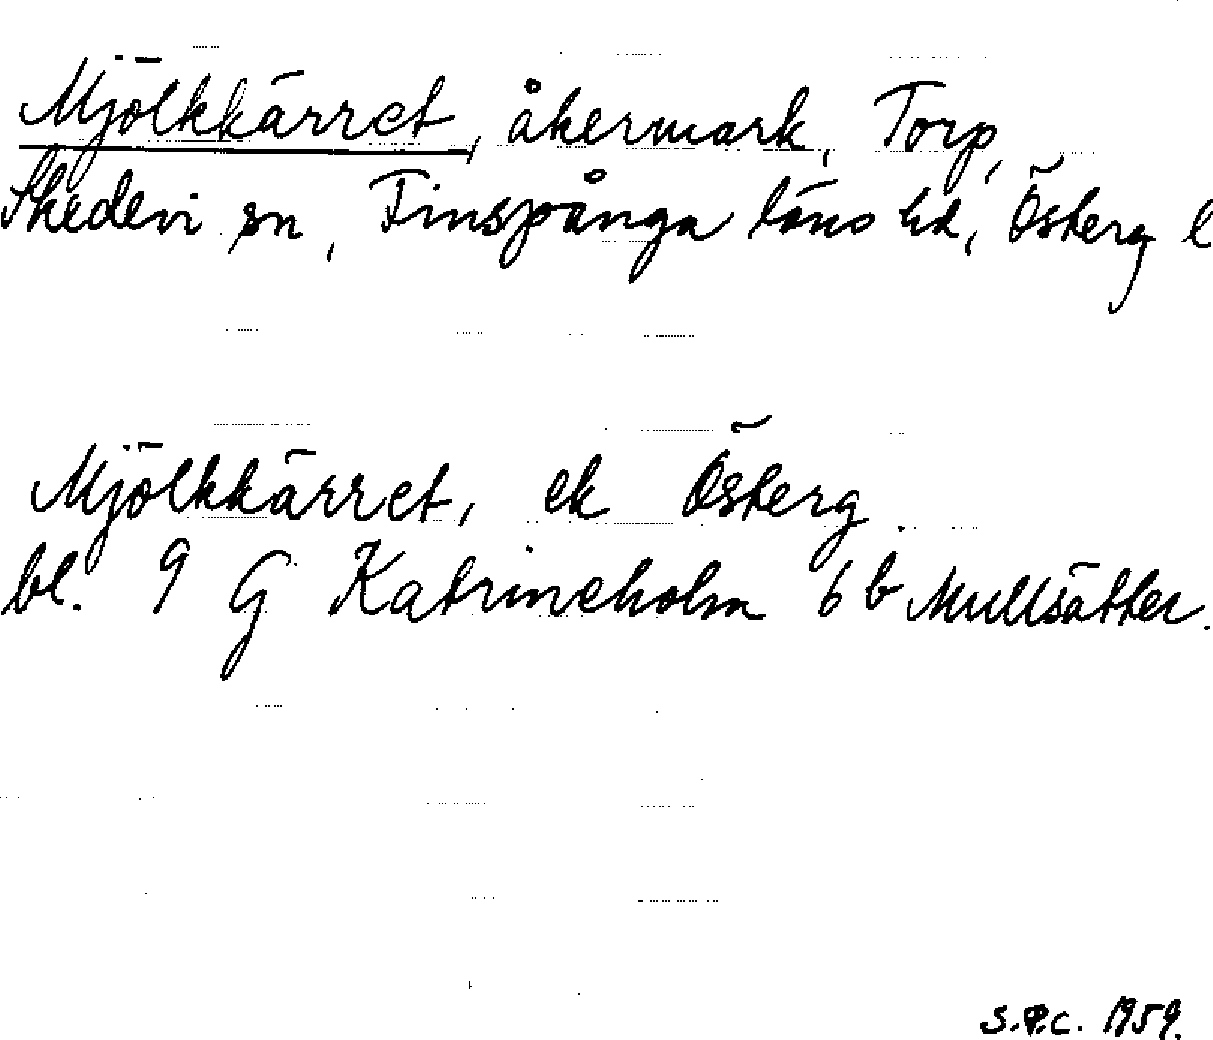 Mjölkkärret, åkermark, Torp,
Skedevi sn, Finspånga läns hd, Österg l
Mjölkkärret, ek Österg
bl. 9 G Katrineholm 6 b Mullsätter.
S.P.C. 1959.